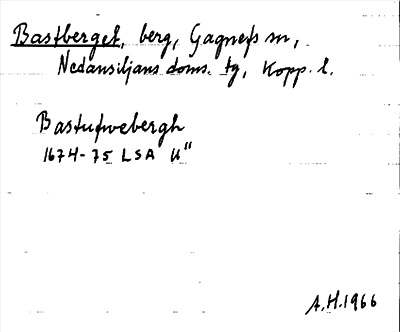 Bastberget, berg, Gagnefs sn,
Nedansiljans doms. tg, Kopp. l.
Bastufwebergh
1674-75 LSA U"
A.H. 1966